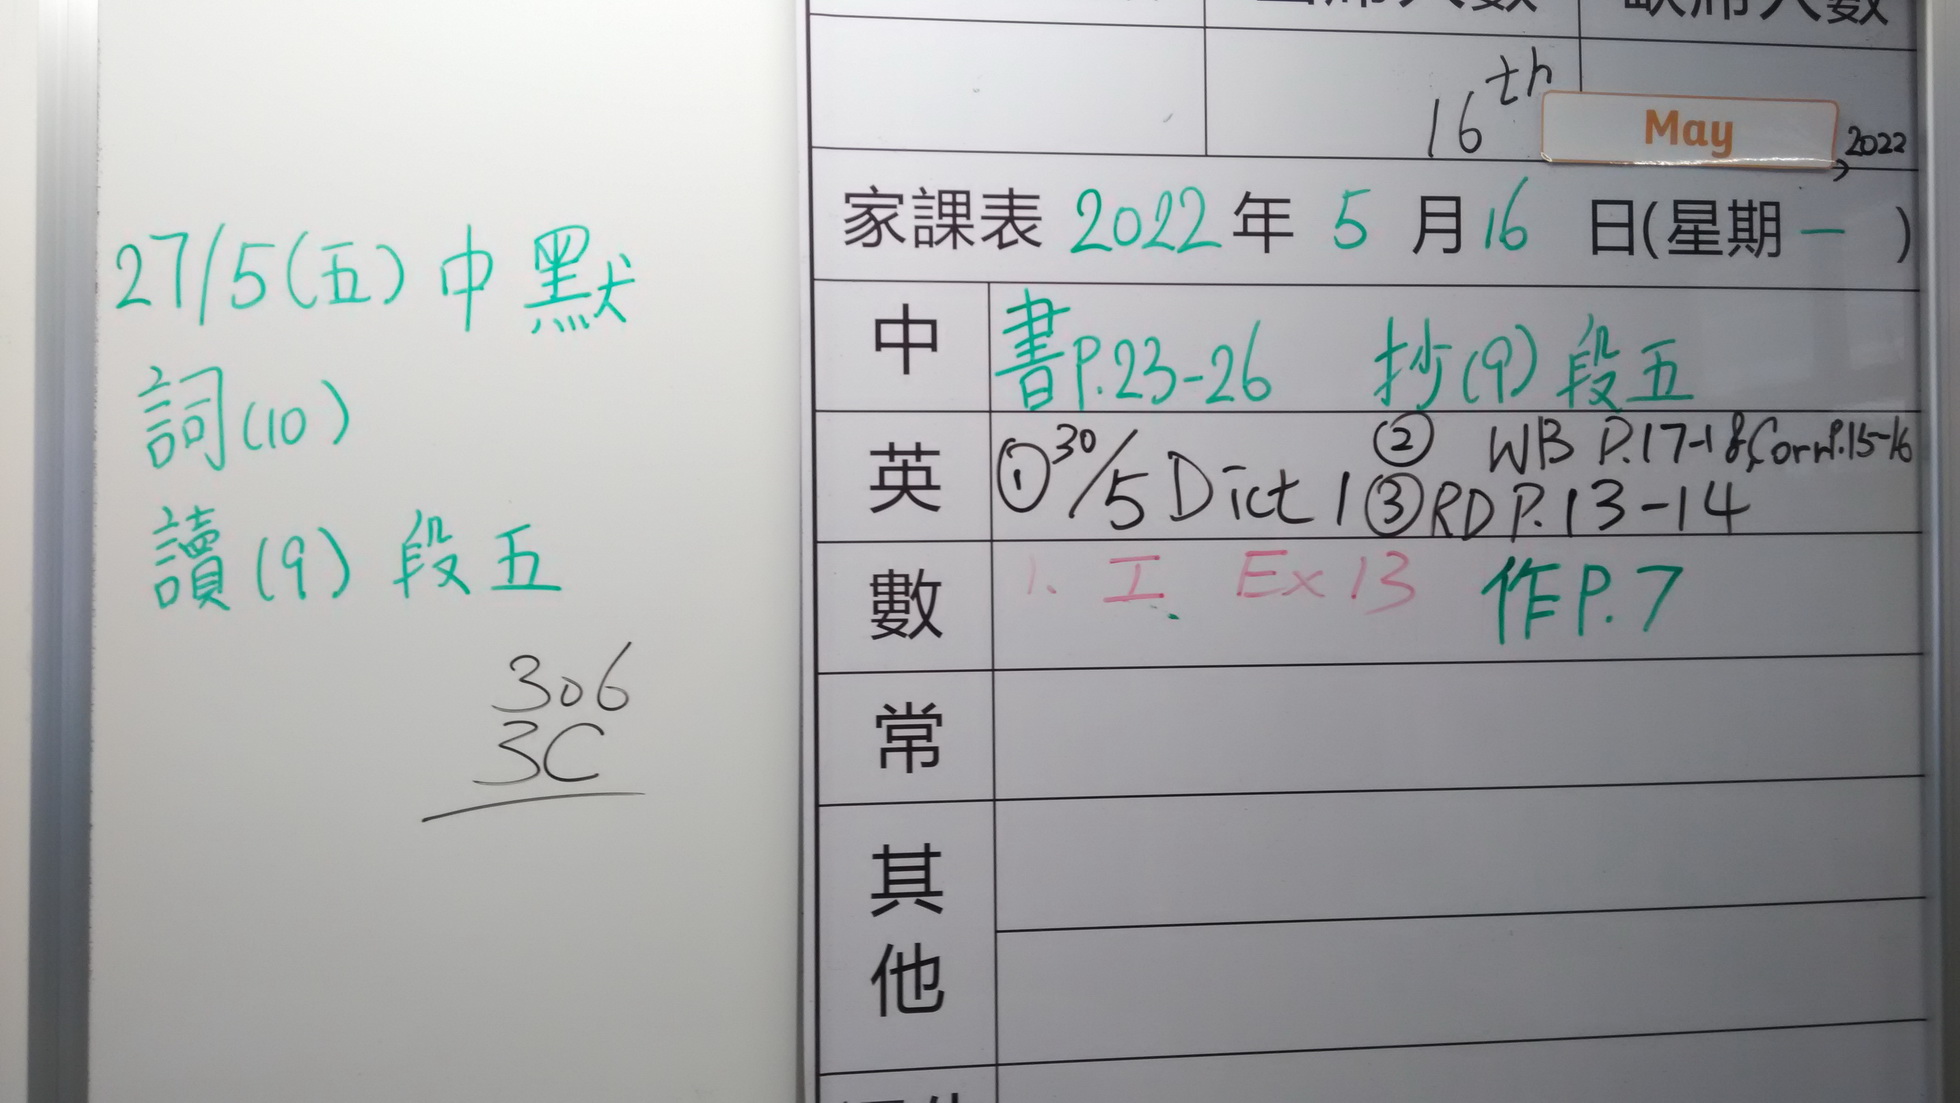 27/5(五)中默
詞(10)
讀(9)段五
306
3C
出席人數 缺席人數
16th May 2022
家課表 2022年 5月16日(星期一)
中 書P.23-26 抄(9)段五
英 ①30/5 Dict 1 ② WB P.17-18, Corr P.15-16
③RD P.13-14
數 1. 工 Ex 13 作P.7
常
其他